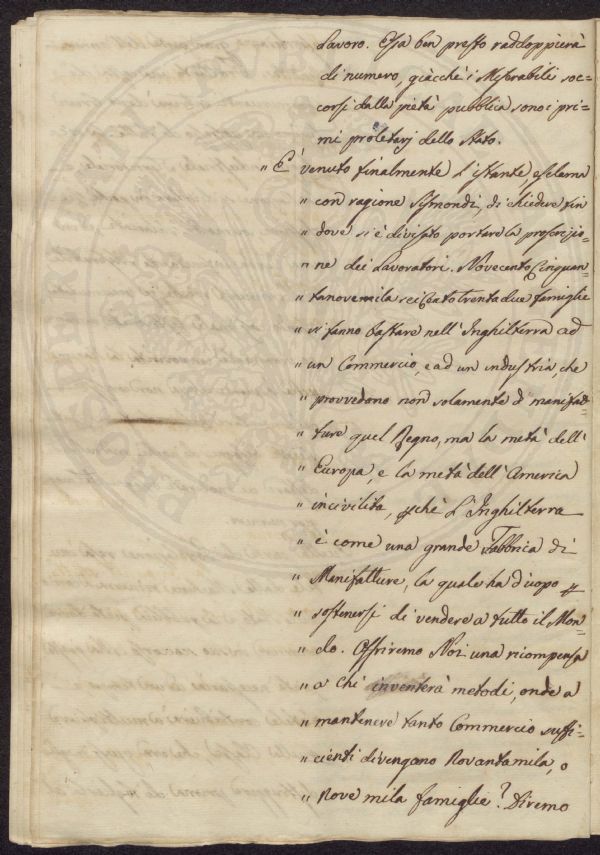 Lavoro. Essa ben presto raddoppierà
di numero, giacchè i Miserabili soc-
corsi dalla pietà pubblica sono i pri-
mi proletarj dello Stato.
" È venuto finalmente l'istante, esclama
" con ragione Sismondi, di chiedere fin
" dove si è diviso portare la proscrizio-
" ne dei Lavoratori. Novecento Cinquan-
" tanovemila seiCento trentadue famiglie
" si fanno bastare nell'Inghilterra ad
" un Commercio, e ad un industria, che
" provvedono non solamente di manifat-
" ture quel Regno, ma la metà dell'
" Europa, e la metà dell'America
" incivilita, pchè l'Inghilterra
" è come una grande Fabbrica di
" Manifatture, la quale ha d'uopo p
" sostenersi di vendere a tutto il Mon-
" do. Offriremo Noi una ricompensa
" a chi inventerà metodi, onde a
" mantenere tanto Commercio suffi-
" cienti divengano Novantamila, o
" Nove mila famiglie? Diremo